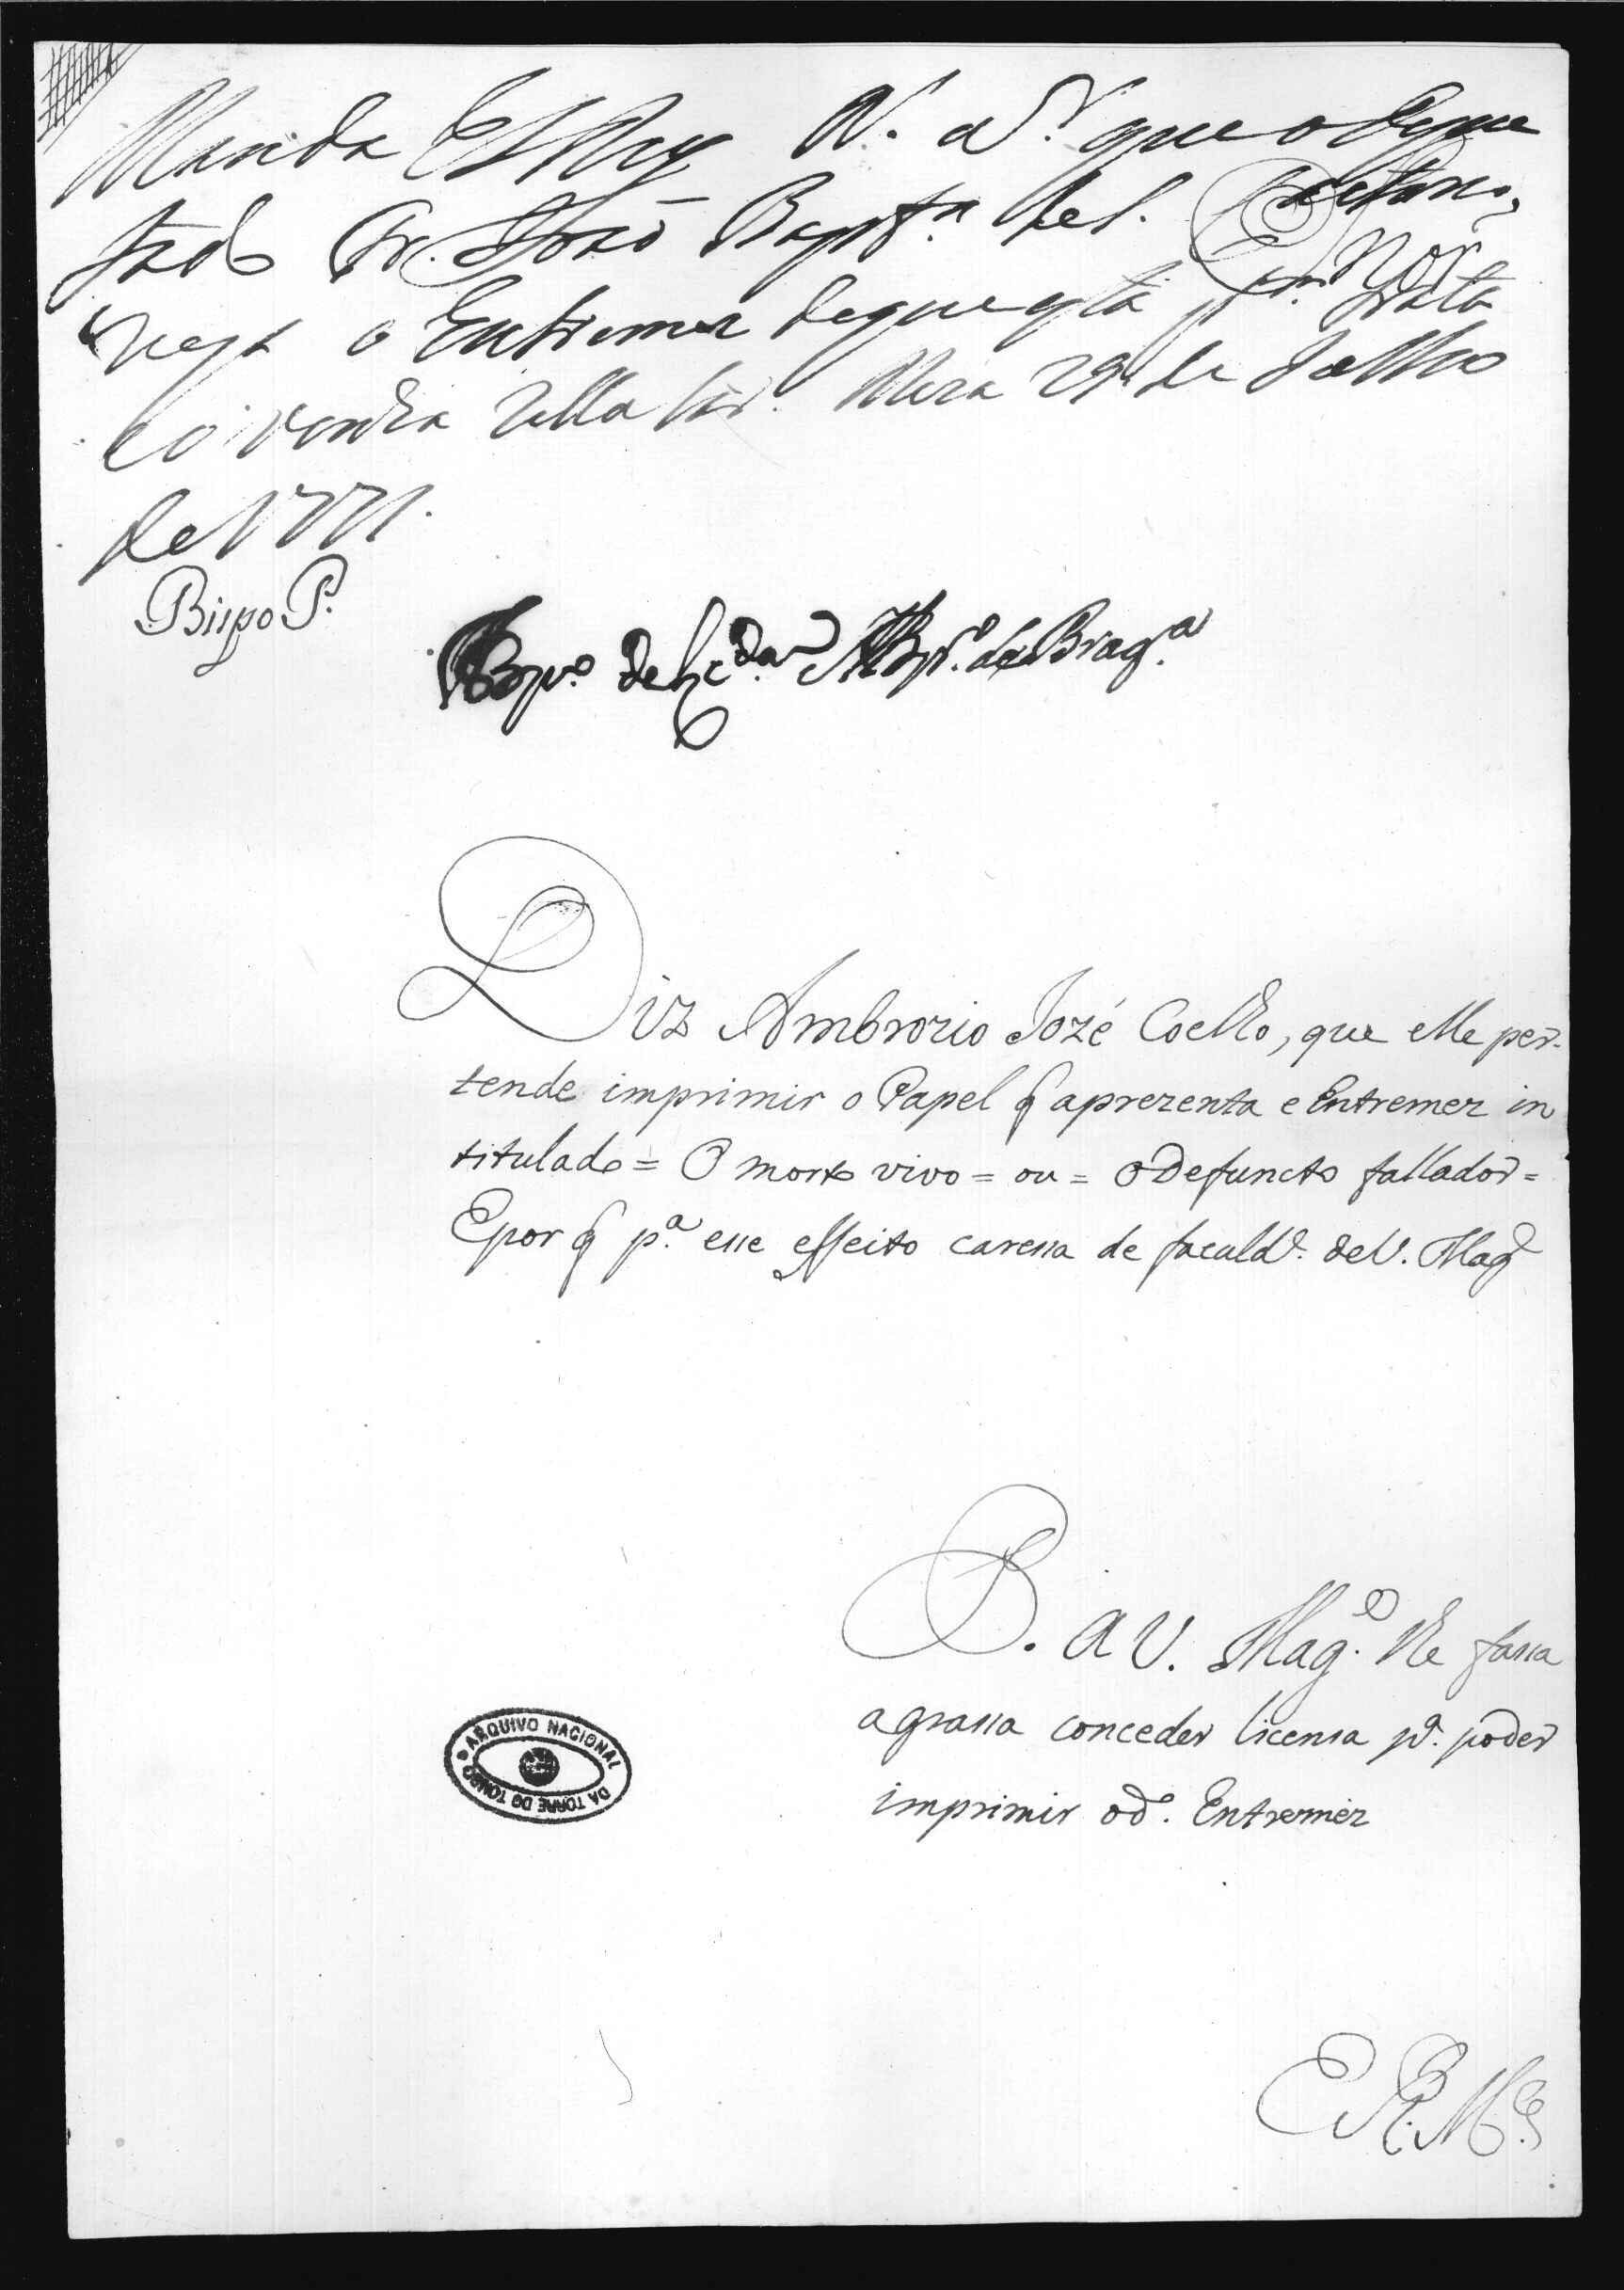 Manda El Rey N. Sr. que o Depu
tado Fr. João Bapta. de S. Caetano,
veja o Entremez de que esta pam. trata
e o venha rellatar. Meza 29 de Julho
de 1771.
Bispo P.
Bispo
de Braga.
Diz Ambrozio Jozé Coelho, que elle per-
tende imprimir o Papel q aprezenta e Entremez in
titulado = O morto vivo = ou = o Defuncto fallador =
E por q pa. esse effeito caressa de faculde. de V. Mage
P. a V. Mage. lhe fassa
a grassa conceder licensa pa. poder
imprimir o do. Entremèz
E. R. Mce.
ARQUIVO NACIONAL DA TORRE DO TOMBO